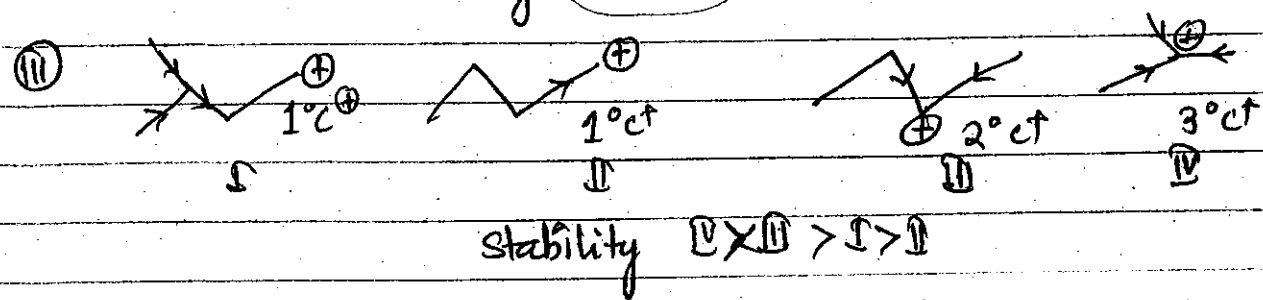 III
⊕ ⊕ ⊕
1°C⊕ 1°C† ⊕ 2°C† 3°C†
I II III IV
Stability IV > III > I > II